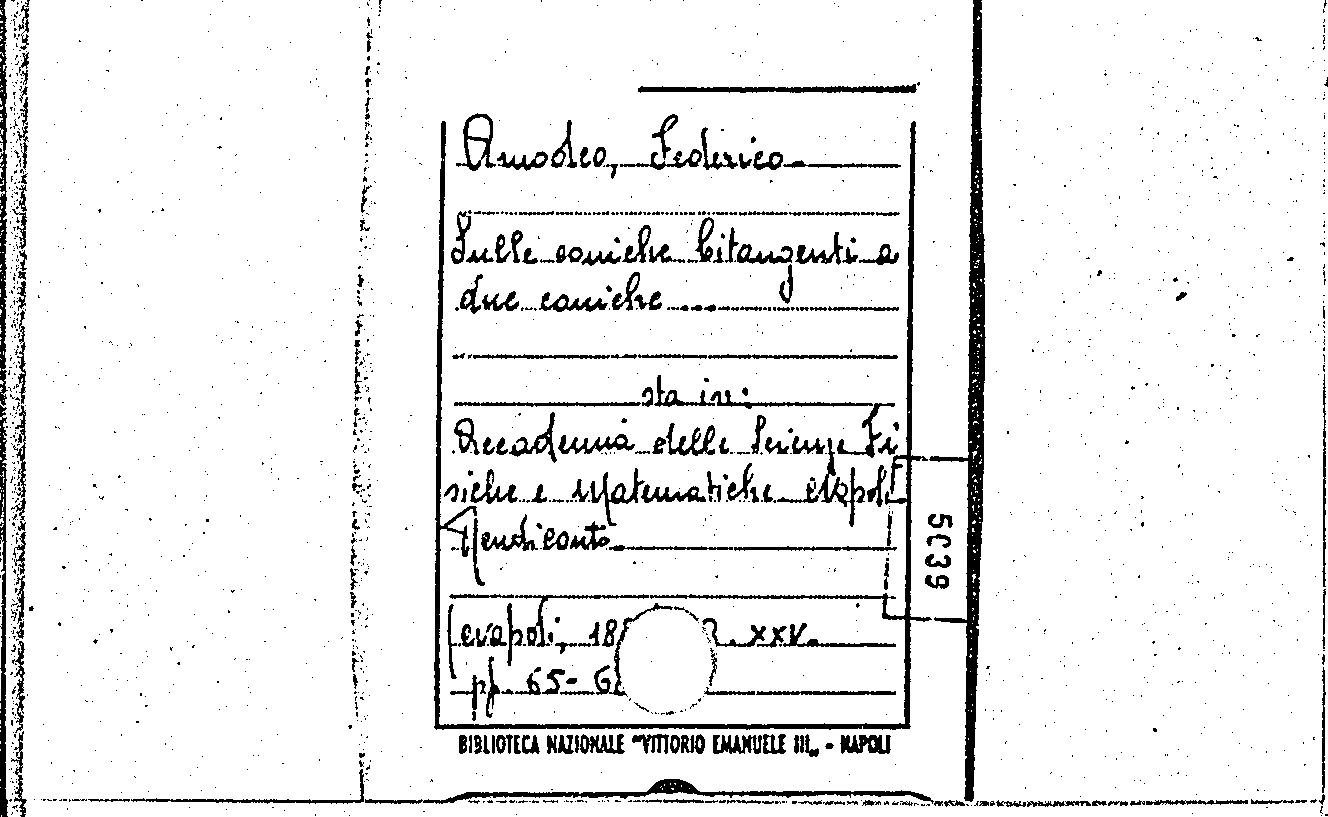 Amodeo, Federico.
Sulle coniche bitangenti a
due coniche ...
sta in:
Accademia delle Scienze Fi
siche e Matematiche. Napoli
Rendiconto.
(Napoli, 18 . XXV.
pp. 65-6
5039
BIBLIOTECA NAZIONALE "VITTORIO EMANUELE III„ - NAPOLI